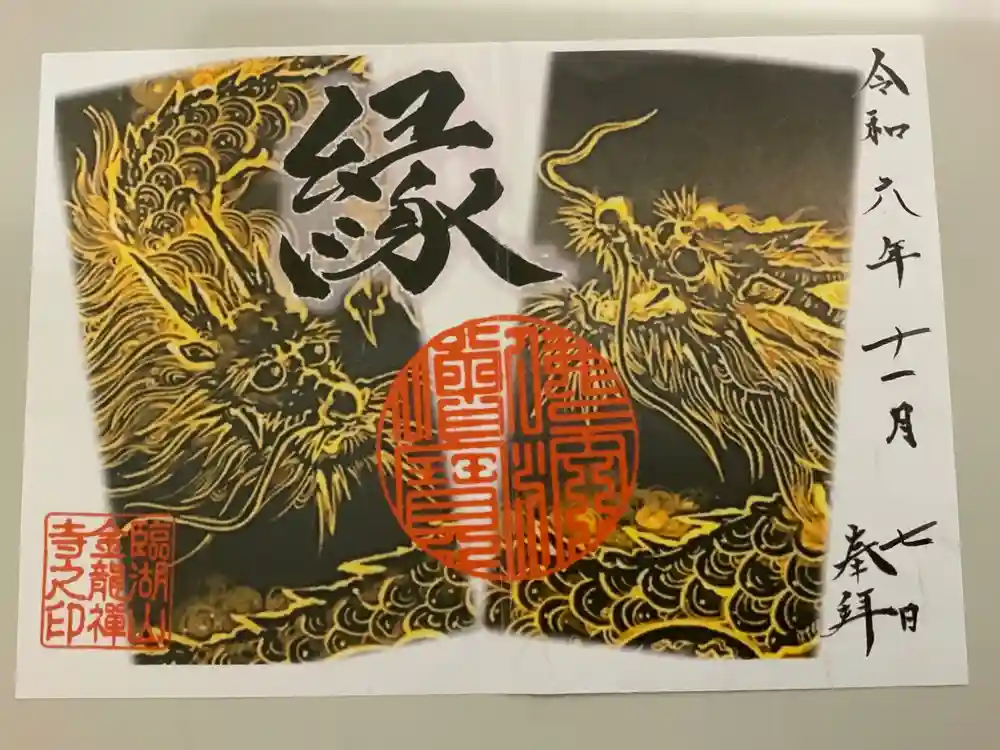 令和六年十一月七日
奉拝
縁
臨湖山
金龍禪
寺之印